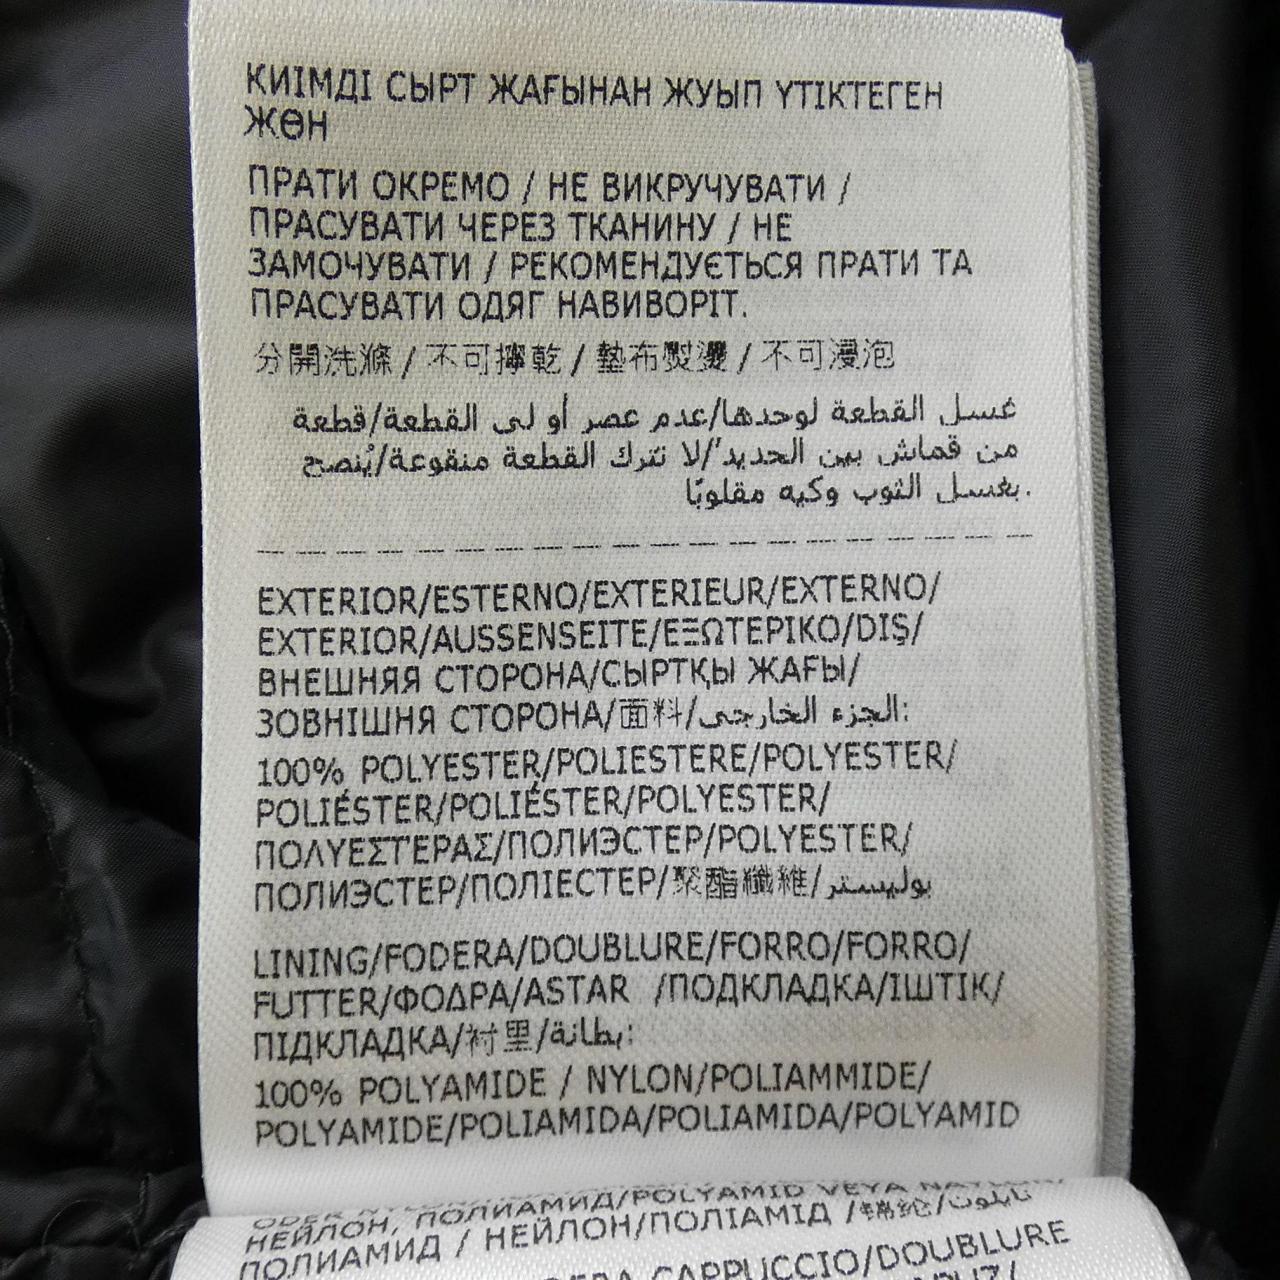 КИІМДІ СЫРТ ЖАҒЫНАН ЖУЫП ҮТІКТЕГЕН
ЖӨН
ПРАТИ ОКРЕМО / НЕ ВИКРУЧУВАТИ /
ПРАСУВАТИ ЧЕРЕЗ ТКАНИНУ / НЕ
ЗАМОЧУВАТИ / РЕКОМЕНДУЄТЬСЯ ПРАТИ ТА
ПРАСУВАТИ ОДЯГ НАВИВОРІТ.
分開洗滌 / 不可擰乾 / 墊布熨燙 / 不可浸泡
غسل القطعة لوحدها/عدم عصر أو لى القطعة/قطعة
من قماش بين الحديد'/لا تترك القطعة منقوعة/يُنصح
بغسل الثوب وكيه مقلوبًا.
EXTERIOR/ESTERNO/EXTERIEUR/EXTERNO/
EXTERIOR/AUSSENSEITE/ΕΞΩΤΕΡΙΚΟ/DIŞ/
ВНЕШНЯЯ СТОРОНА/СЫРТҚЫ ЖАҒЫ/
ЗОВНІШНЯ СТОРОНА/面料/الجزء الخارجى:
100% POLYESTER/POLIESTERE/POLYESTER/
POLIÉSTER/POLIÉSTER/POLYESTER/
ΠΟΛΥΕΣΤΕΡΑΣ/ПОЛИЭСТЕР/POLYESTER/
ПОЛИЭСТЕР/ПОЛІЕСТЕР/聚酯纖維/بوليستر
LINING/FODERA/DOUBLURE/FORRO/FORRO/
FUTTER/ΦΟΔΡΑ/ASTAR /ПОДКЛАДКА/ІШТІК/
ПІДКЛАДКА/衬里/بطانة:
100% POLYAMIDE / NYLON/POLIAMMIDE/
POLYAMIDE/POLIAMIDA/POLIAMIDA/POLYAMID
ПОЛИАМИД/POLYAMID VEYA
НЕЙЛОН, ПОЛИАМИД / НЕЙЛОН/ПОЛІАМІД /锦纶/نايلون
CAPPUCCIO/DOUBLURE